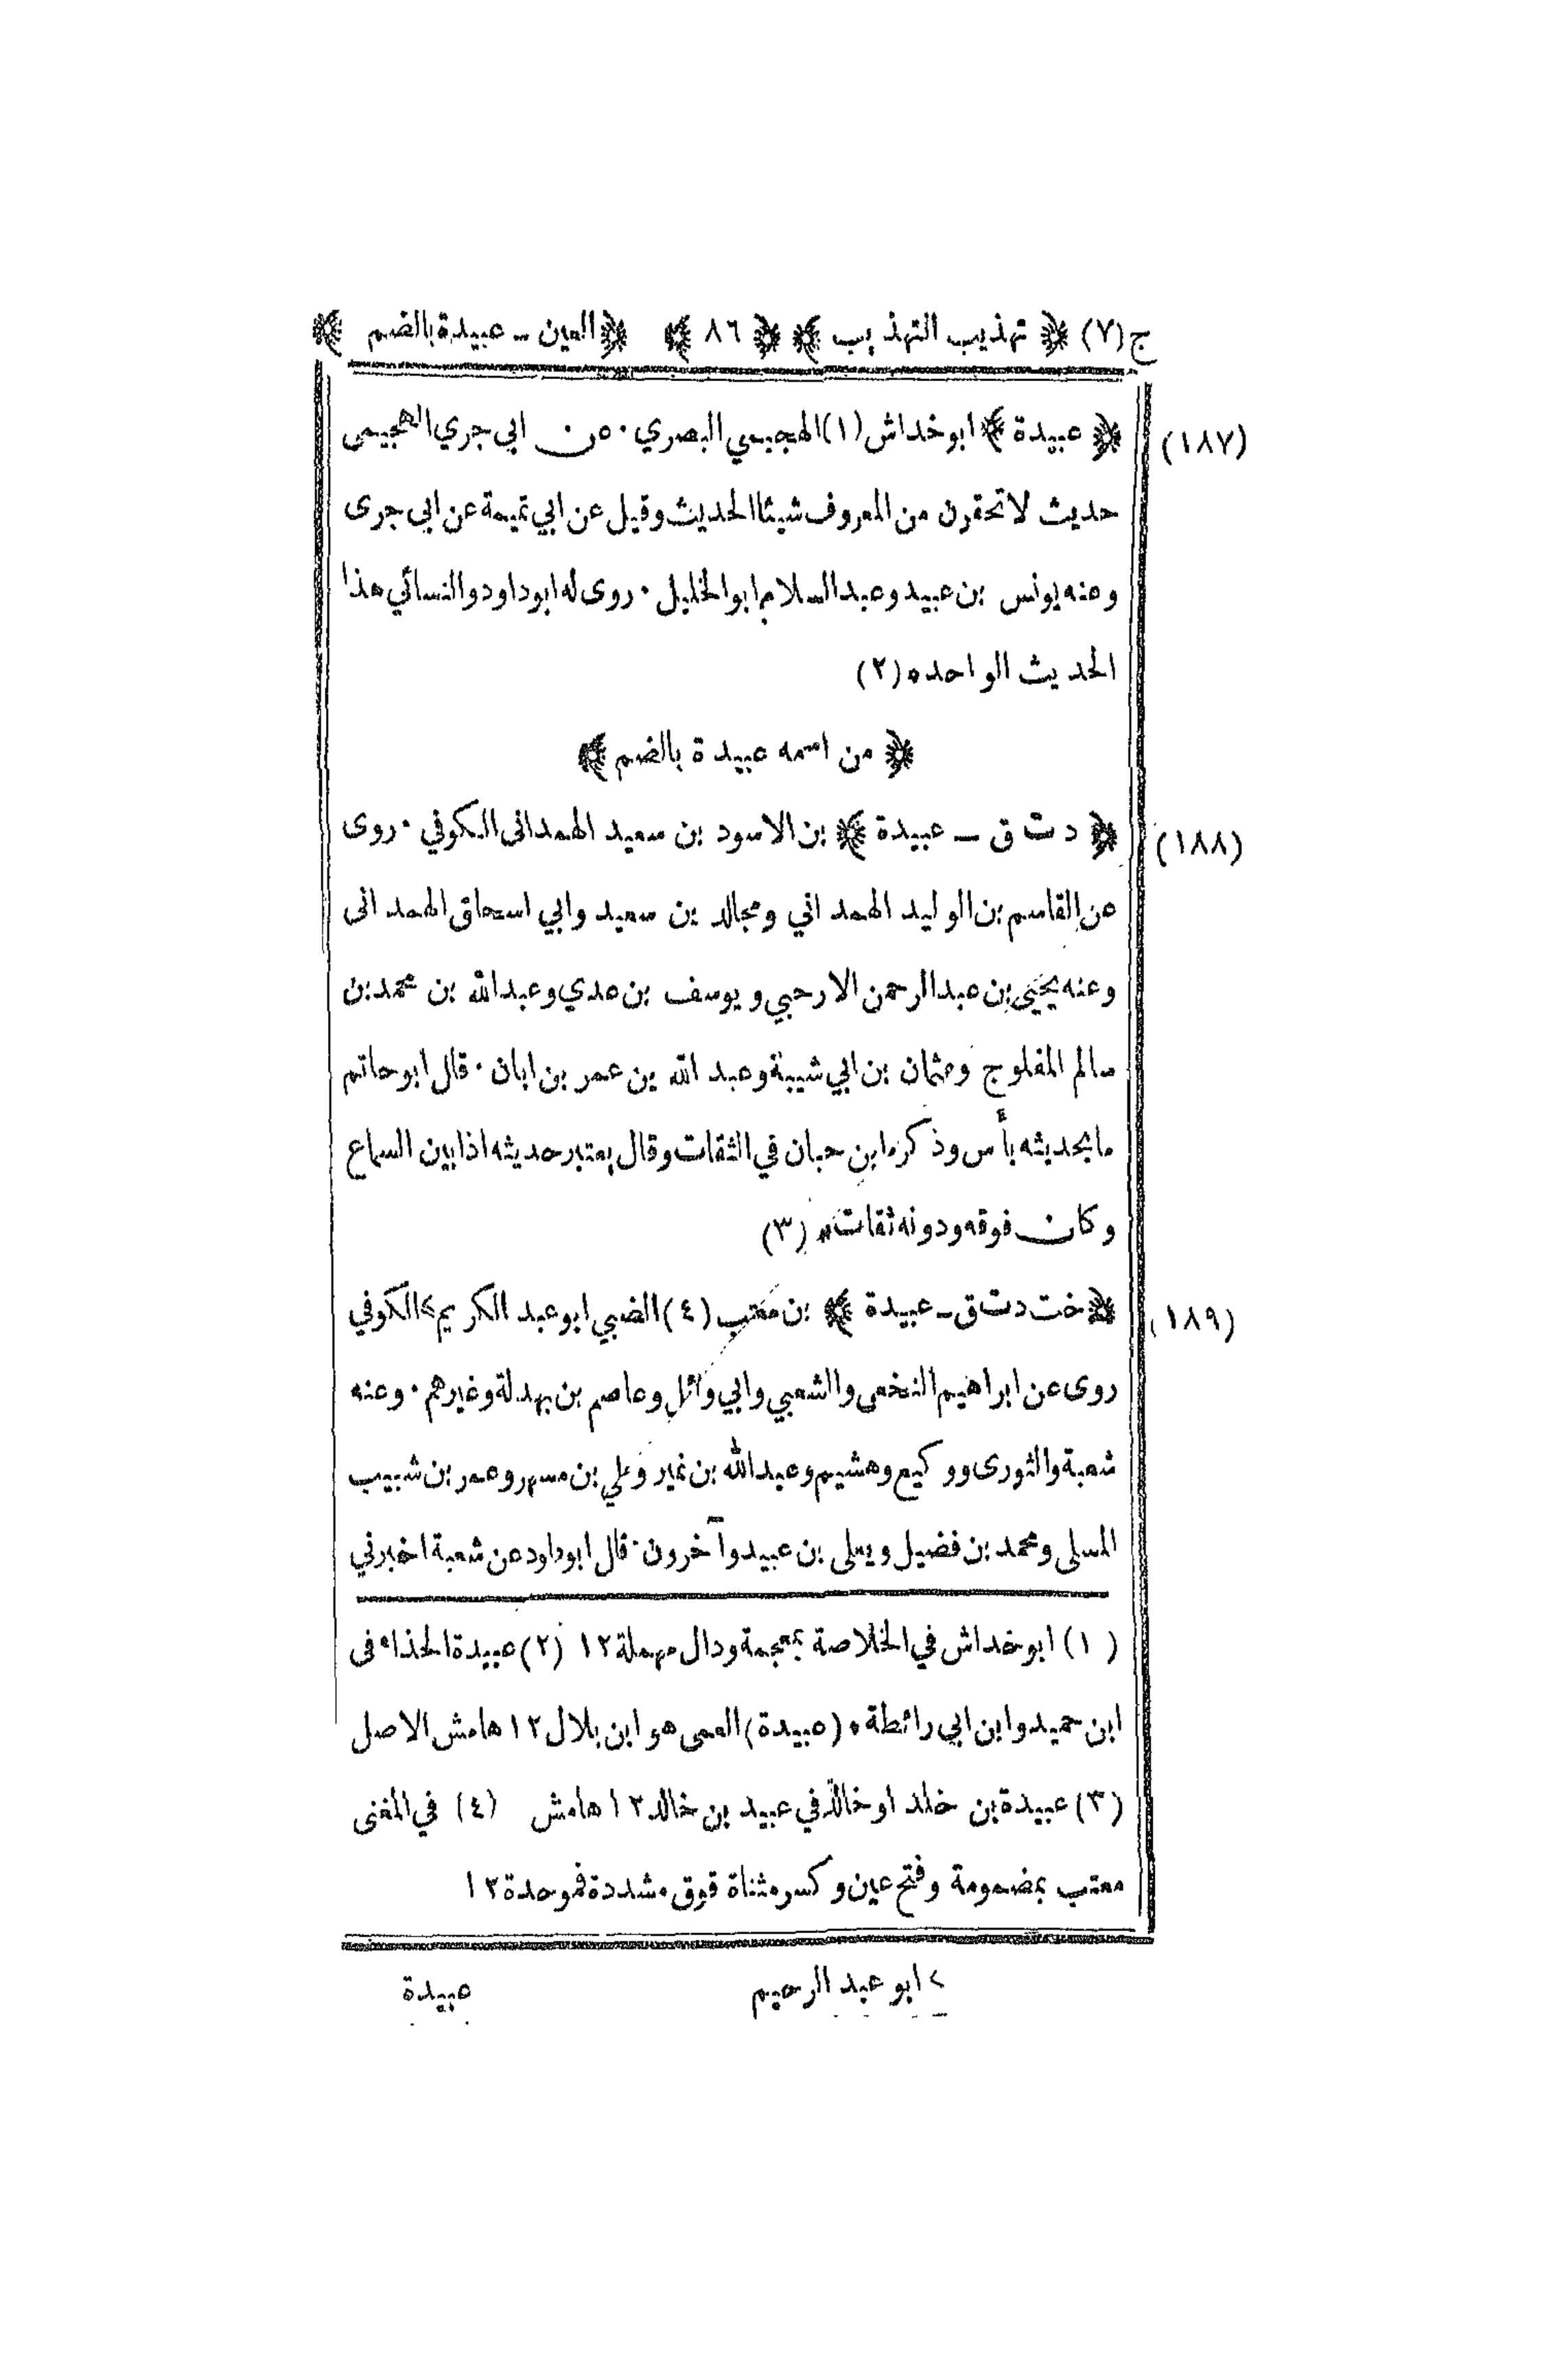 ج (٧) ﴿ تهذيب التهذيب ﴾ ﴿ ٨٦ ﴾ ﴿ العين ــ عبيدة بالضم ﴾
(١٨٧) ﴿ عبيدة ﴾ ابو خداش (١) الهجيمي البصري · عن ابي جري الهجيمى
حديث لا تحقرن من المعروف شيئا الحديث وقيل عن ابي تميمة عن ابي جرى
وعنه يونس بن عبيد وعبد السلام ابو الخليل · روى له ابو داود والنسائي هذا
الحديث الواحد ٥ (٢)
﴿ من اسمه عبيدة بالضم ﴾
(١٨٨) ﴿ د ت ق ــ عبيدة ﴾ بن الاسود بن سعيد الهمدانى الكوفي · روى
عن القاسم بن الوليد الهمداني ومجالد بن سعيد وابي اسحاق الهمدانى
وعنه يحيى بن عبد الرحمن الارحبي ويوسف بن عدي وعبد الله بن محمد بن
سالم المفلوج وعثمان بن ابي شيبة وعبد الله بن عمر بن ابان · قال ابو حاتم
ما بحديثه بأس وذكره ابن حبان في الثقات وقال يعتبر حديثه اذا بين السماع
وكان فوقه ودونه ثقات * (٣)
(١٨٩) ﴿ خت د ت ق ــ عبيدة ﴾ بن معتب (٤) الضبي ابو عبد الكريم > الكوفي
روى عن ابراهيم النخعى والشعبي وابي وائل وعاصم بن بهدلة وغيرهم · وعنه
شعبة والثورى ووكيع وهشيم وعبد الله بن نمير وعلي بن مسهر وعمر بن شبيب
المسلى ومحمد بن فضيل ويعلى بن عبيد وآخرون · قال ابو داود عن شعبة اخبرني
(١) ابو خداش في الخلاصة بمعجمة ودال مهملة ١٢ (٢) عبيدة الحذاء فى
ابن حميد وابن ابي رائطة ٥ (عبيدة) العمى هو ابن بلال ١٢ هامش الاصل
(٣) عبيدة بن خلد او خالد في عبيد بن خالد ١٢ هامش (٤) في المغنى
معتب بمضمومة وفتح عين وكسر مثناة فوق مشددة فموحدة ١٢
> ابو عبد الرحيم
عبيدة